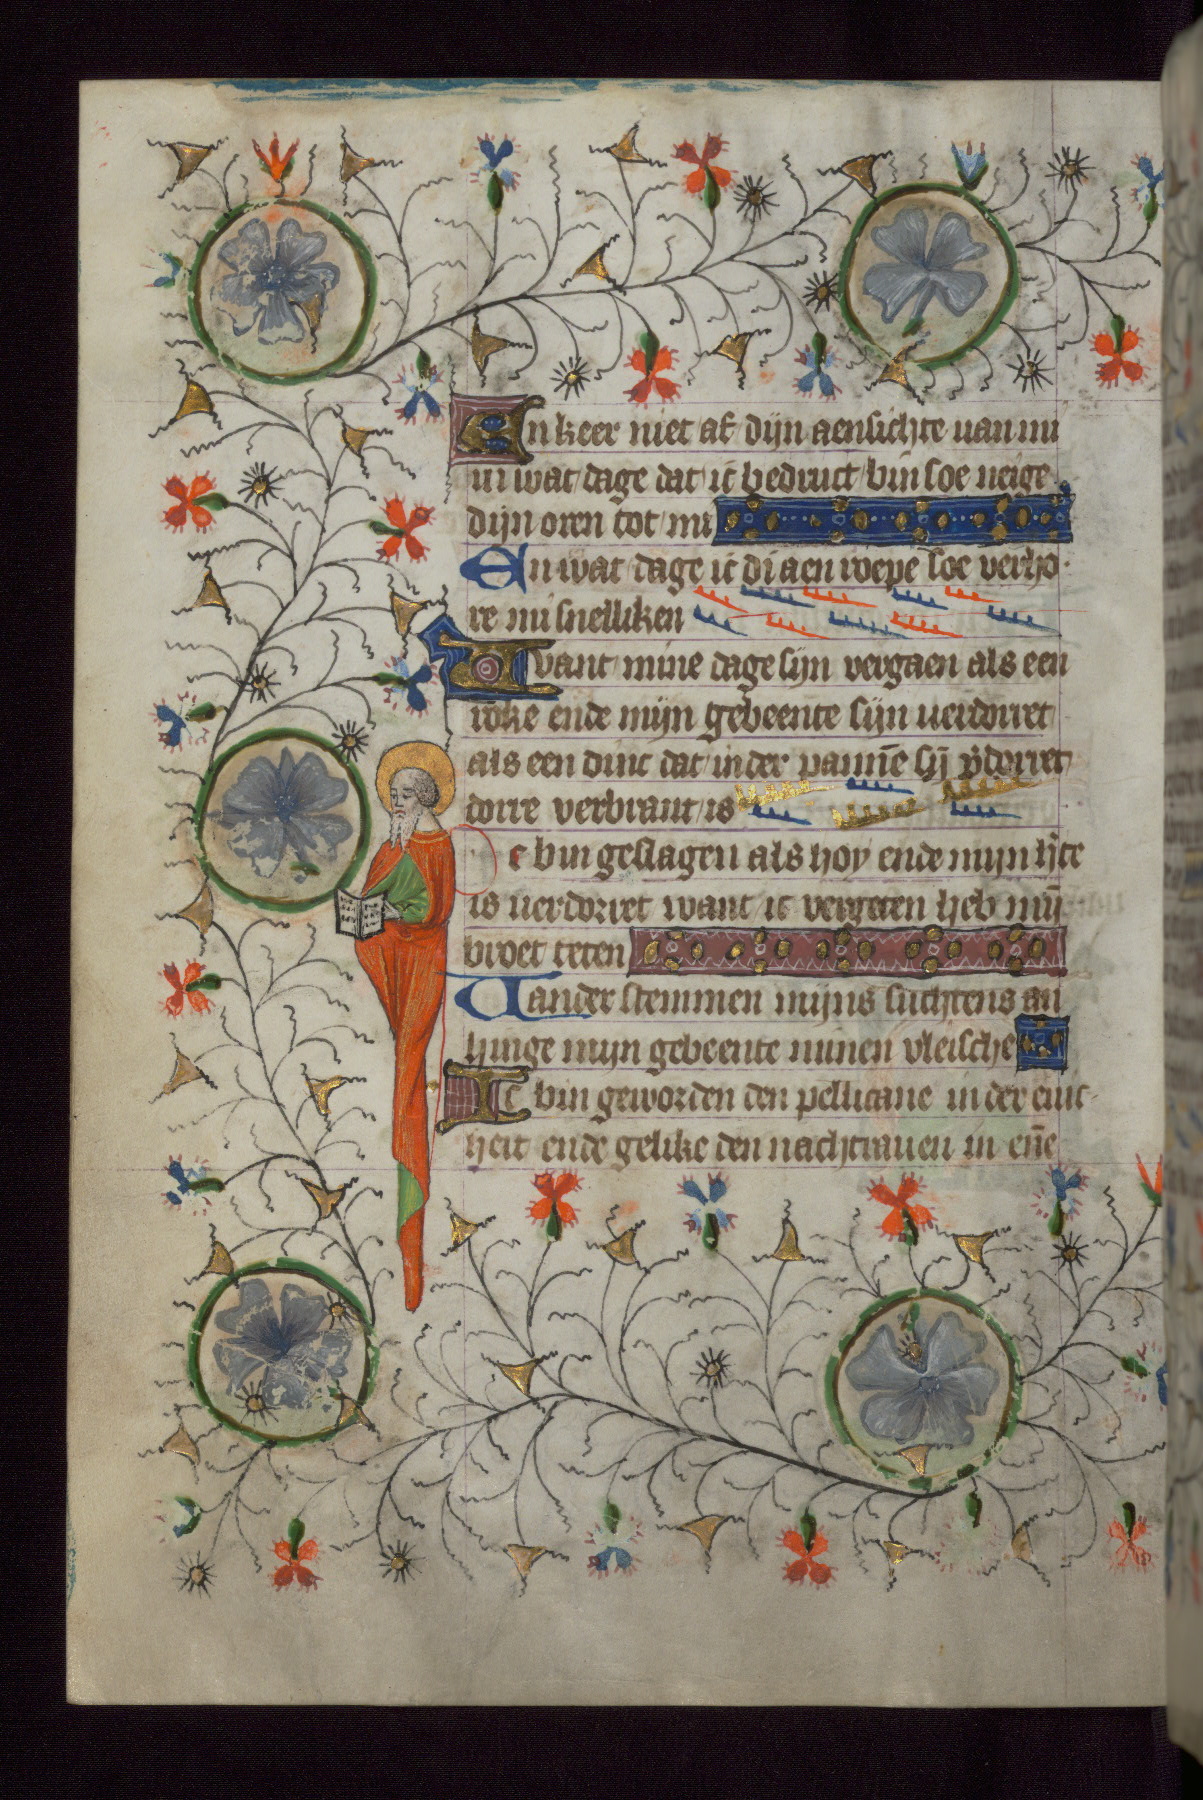 En keer niet af dijn aensichte van mi
in wat dage dat ic bedruct bin soe neige
dijn oren tot mi
En wat dage ic di aen roepe soe verho
re mi snelliken
Want mine dage sijn vergaen als een
roke ende mijn gebeente sijn verdorret
als een dinc dat in der pannē sij v̄dorret
dorre verbrant is
Ic bin geslagen als hoy ende mijn h̄te
is verdorret want ic vergeten heb mijn̄
broet teten
Vander stemmen mijns suchtens an
hinge mijn gebeente minen vleische
Ic bin geworden den pellicane in der enic
heit ende gelike den nachtrauen in en̄e